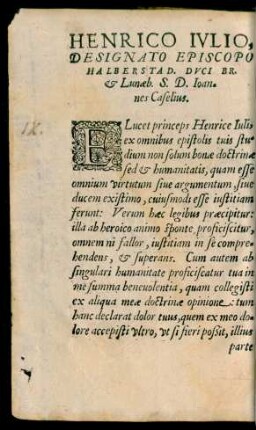 HENRICO IVLIO,
DESIGNATO EPISCOPO
HALBERSTAD. DVCI BR.
& Lunæb. S. D. Ioan-
nes Caselius.
IX.
ELucet princeps Henrice Iuli,
ex omnibus epistolis tuis stu-
dium non solum bonæ doctrinæ
sed & humanitatis, quam esse
omnium virtutum siue argumentum, siue
ducem existimo, cuiusmodi esse iustitiam
ferunt: Verum hæc legibus præcipitur:
illa ab heroico animo sponte proficiscitur,
omnem ni fallor, iustitiam in se compre-
hendens, & superans. Cum autem ab
singulari humanitate proficiscatur tua in
me summa beneuolentia, quam collegisti
ex aliqua meæ doctrinæ opinione: tum
hanc declarat dolor tuus, quem ex meo do-
lore accepisti vltro, vt si fieri possit, illius
parte